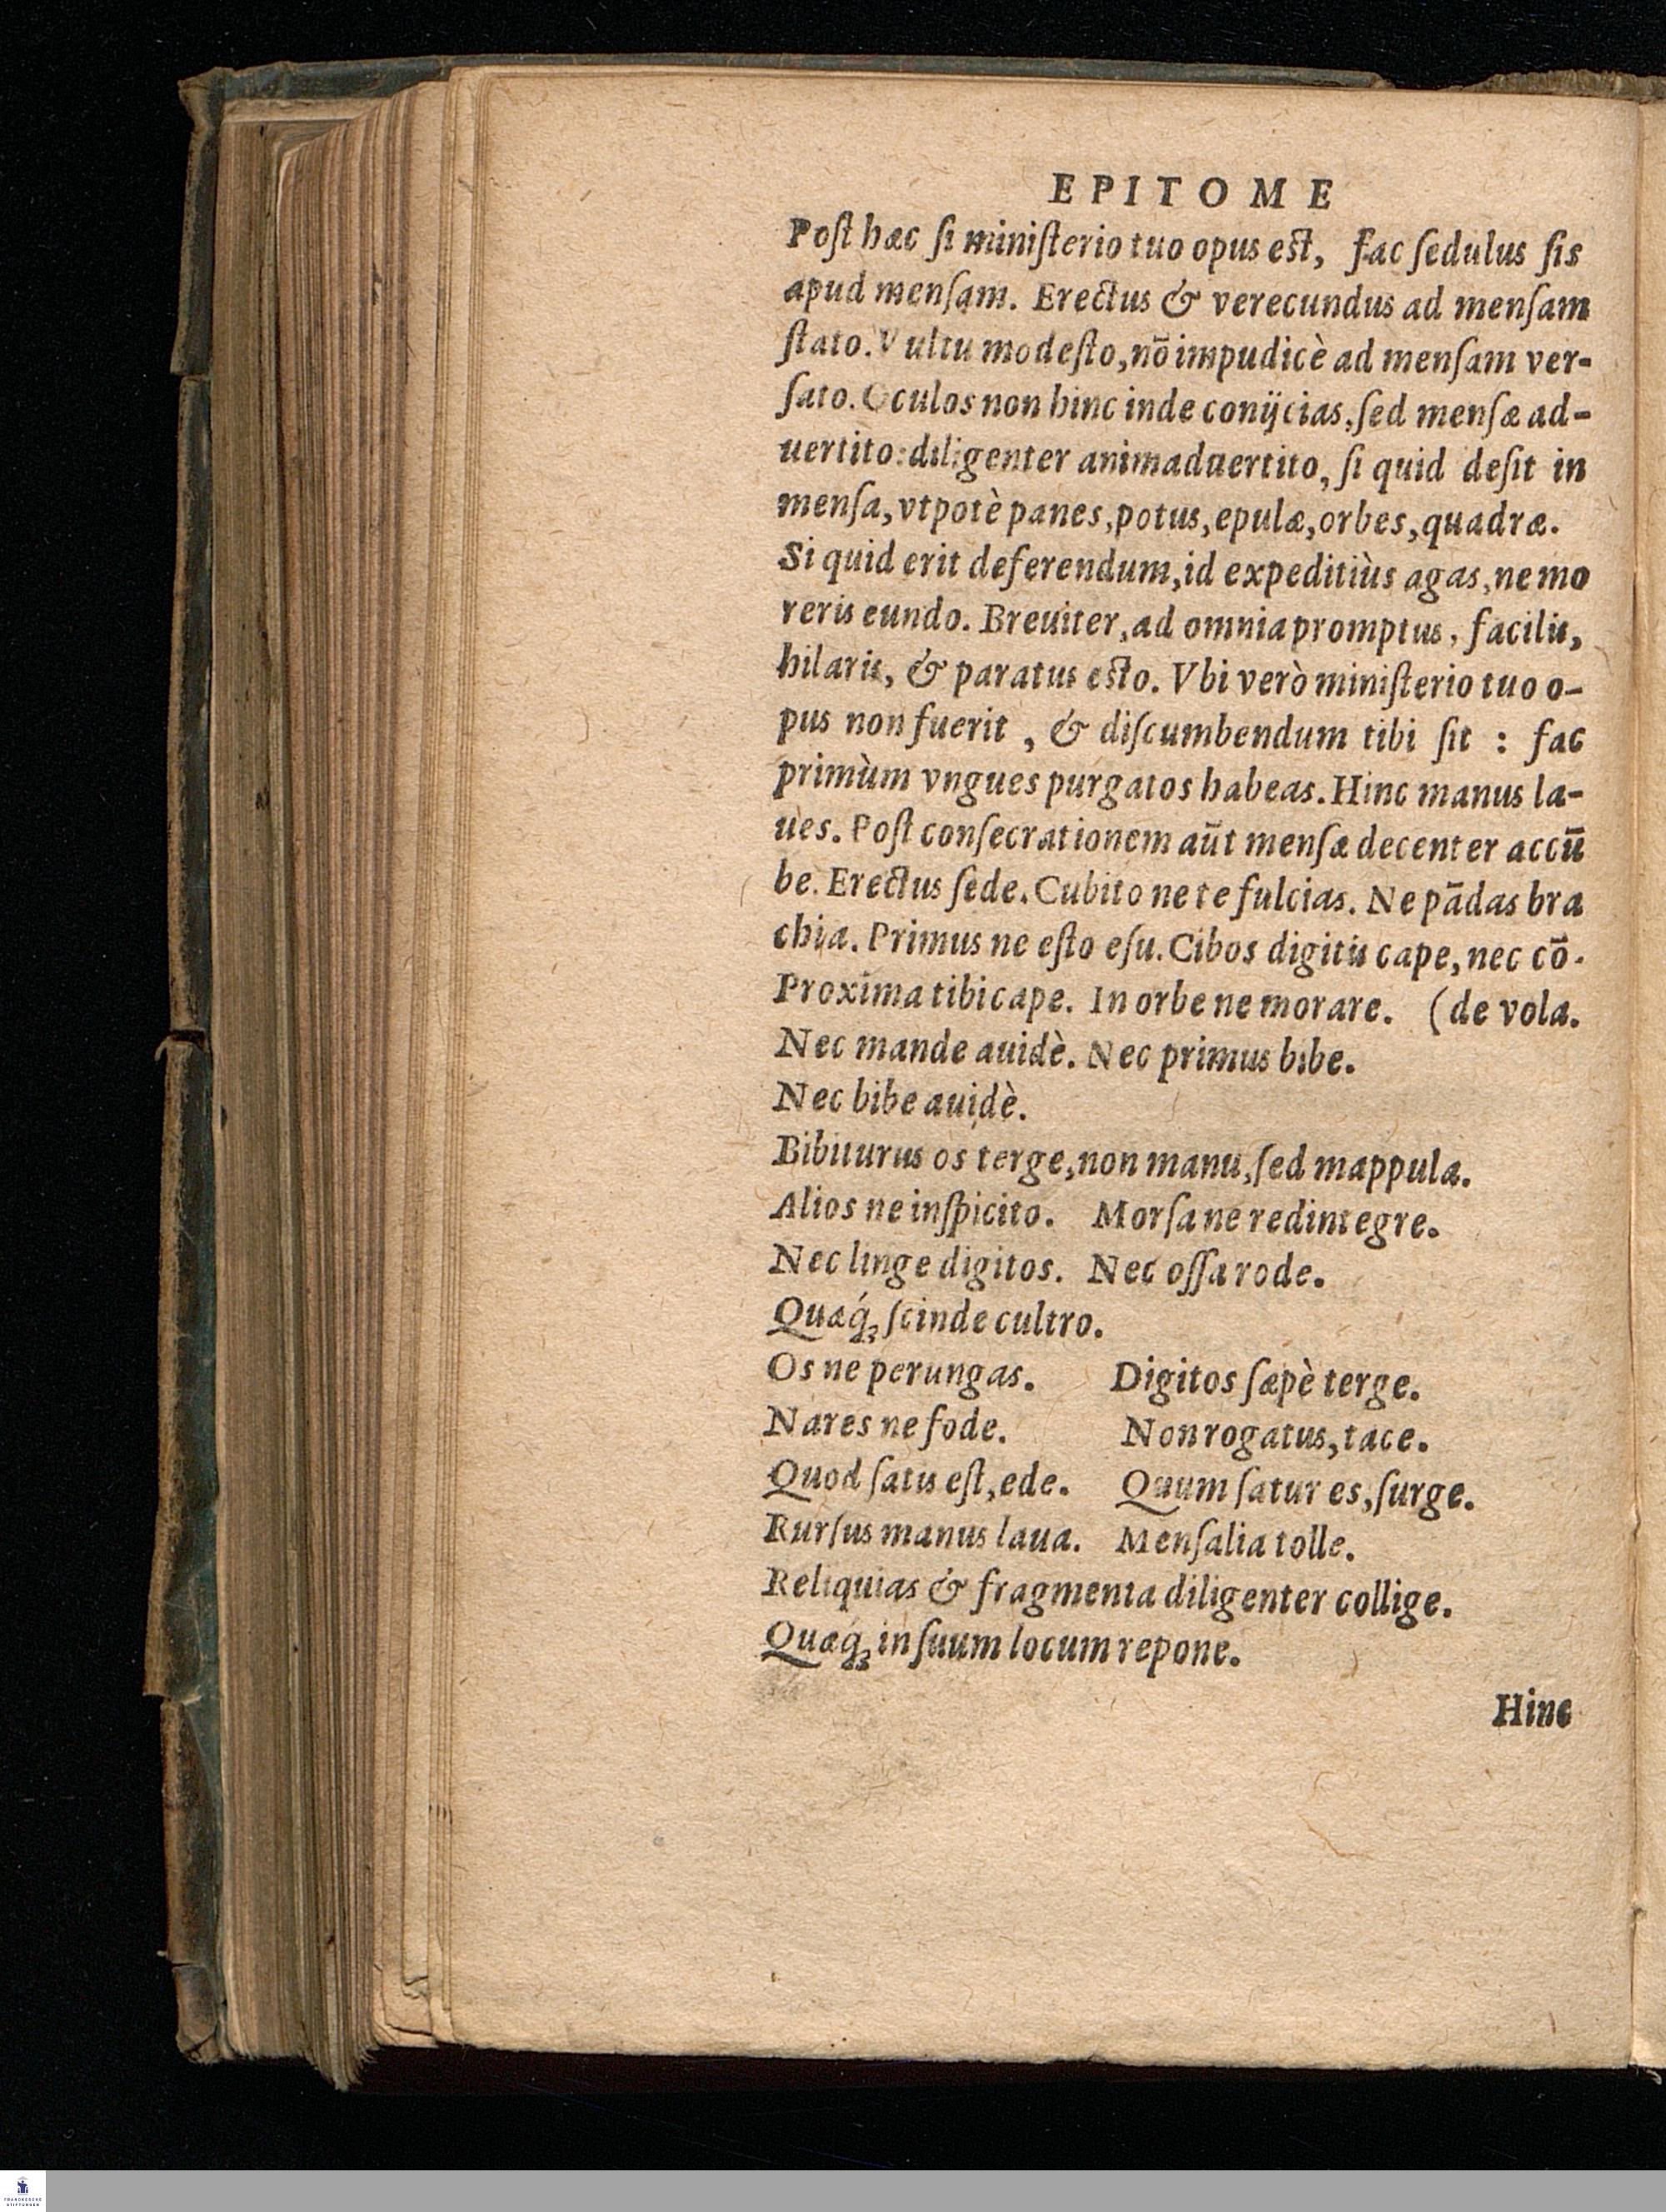 EPITOME
Post hæc si ministerio tuo opus est, fac sedulus sis
apud mensam. Erectus & verecundus ad mensam
stato. Vultu modesto, nō impudicè ad mensam ver-
sato. Oculos non hinc inde conijcias, sed mensæ ad-
uertito: diligenter animaduertito, si quid desit in
mensa, vtpotè panes, potus, epulæ, orbes, quadræ.
Si quid erit deferendum, id expeditiùs agas, ne mo
reris eundo. Breuiter, ad omnia promptus, facilis,
hilaris, & paratus esto. Vbi verò ministerio tuo o-
pus non fuerit, & discumbendum tibi sit : fac
primùm vngues purgatos habeas. Hinc manus la-
ues. Post consecrationem aūt mensæ decenter accū
be. Erectus sede. Cubito ne te fulcias. Ne pādas bra
chia. Primus ne esto esu. Cibos digitis cape, nec cō-
Proxima tibi cape. In orbe ne morare. (de vola.
Nec mande auidè. Nec primus bibe.
Nec bibe auidè.
Bibiturus os terge, non manu, sed mappula.
Alios ne inspicito. Morsa ne redintegre.
Nec linge digitos. Nec ossa rode.
Quæq́ꝫ scinde cultro.
Os ne perungas. Digitos sæpè terge.
Nares ne fode. Non rogatus, tace.
Quod satis est, ede. Quum satur es, surge.
Rursus manus laua. Mensalia tolle.
Reliquias & fragmenta diligenter collige.
Quæq́ꝫ in suum locum repone.
Hinc
FRANCKESCHE
STIFTUNGEN